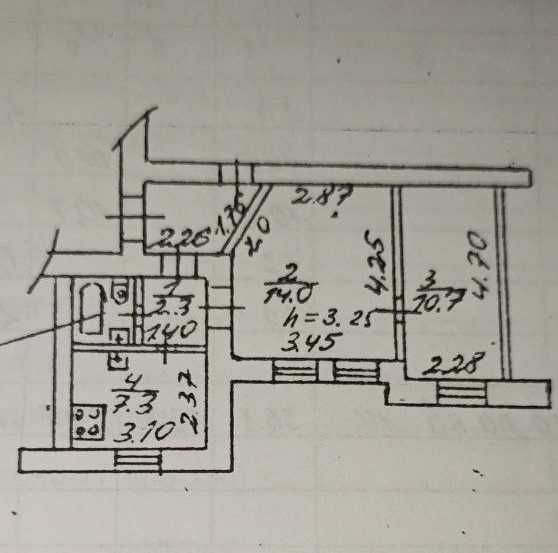 2.87
1.76
2.26
2.0
2
14.0
4.25
3
10.7
4.70
1
2.3
1.40
h = 3.25
3.45
2.28
4
7.3
2.37
3.10